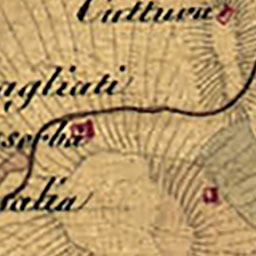 Cultura
agliati
serba
alia